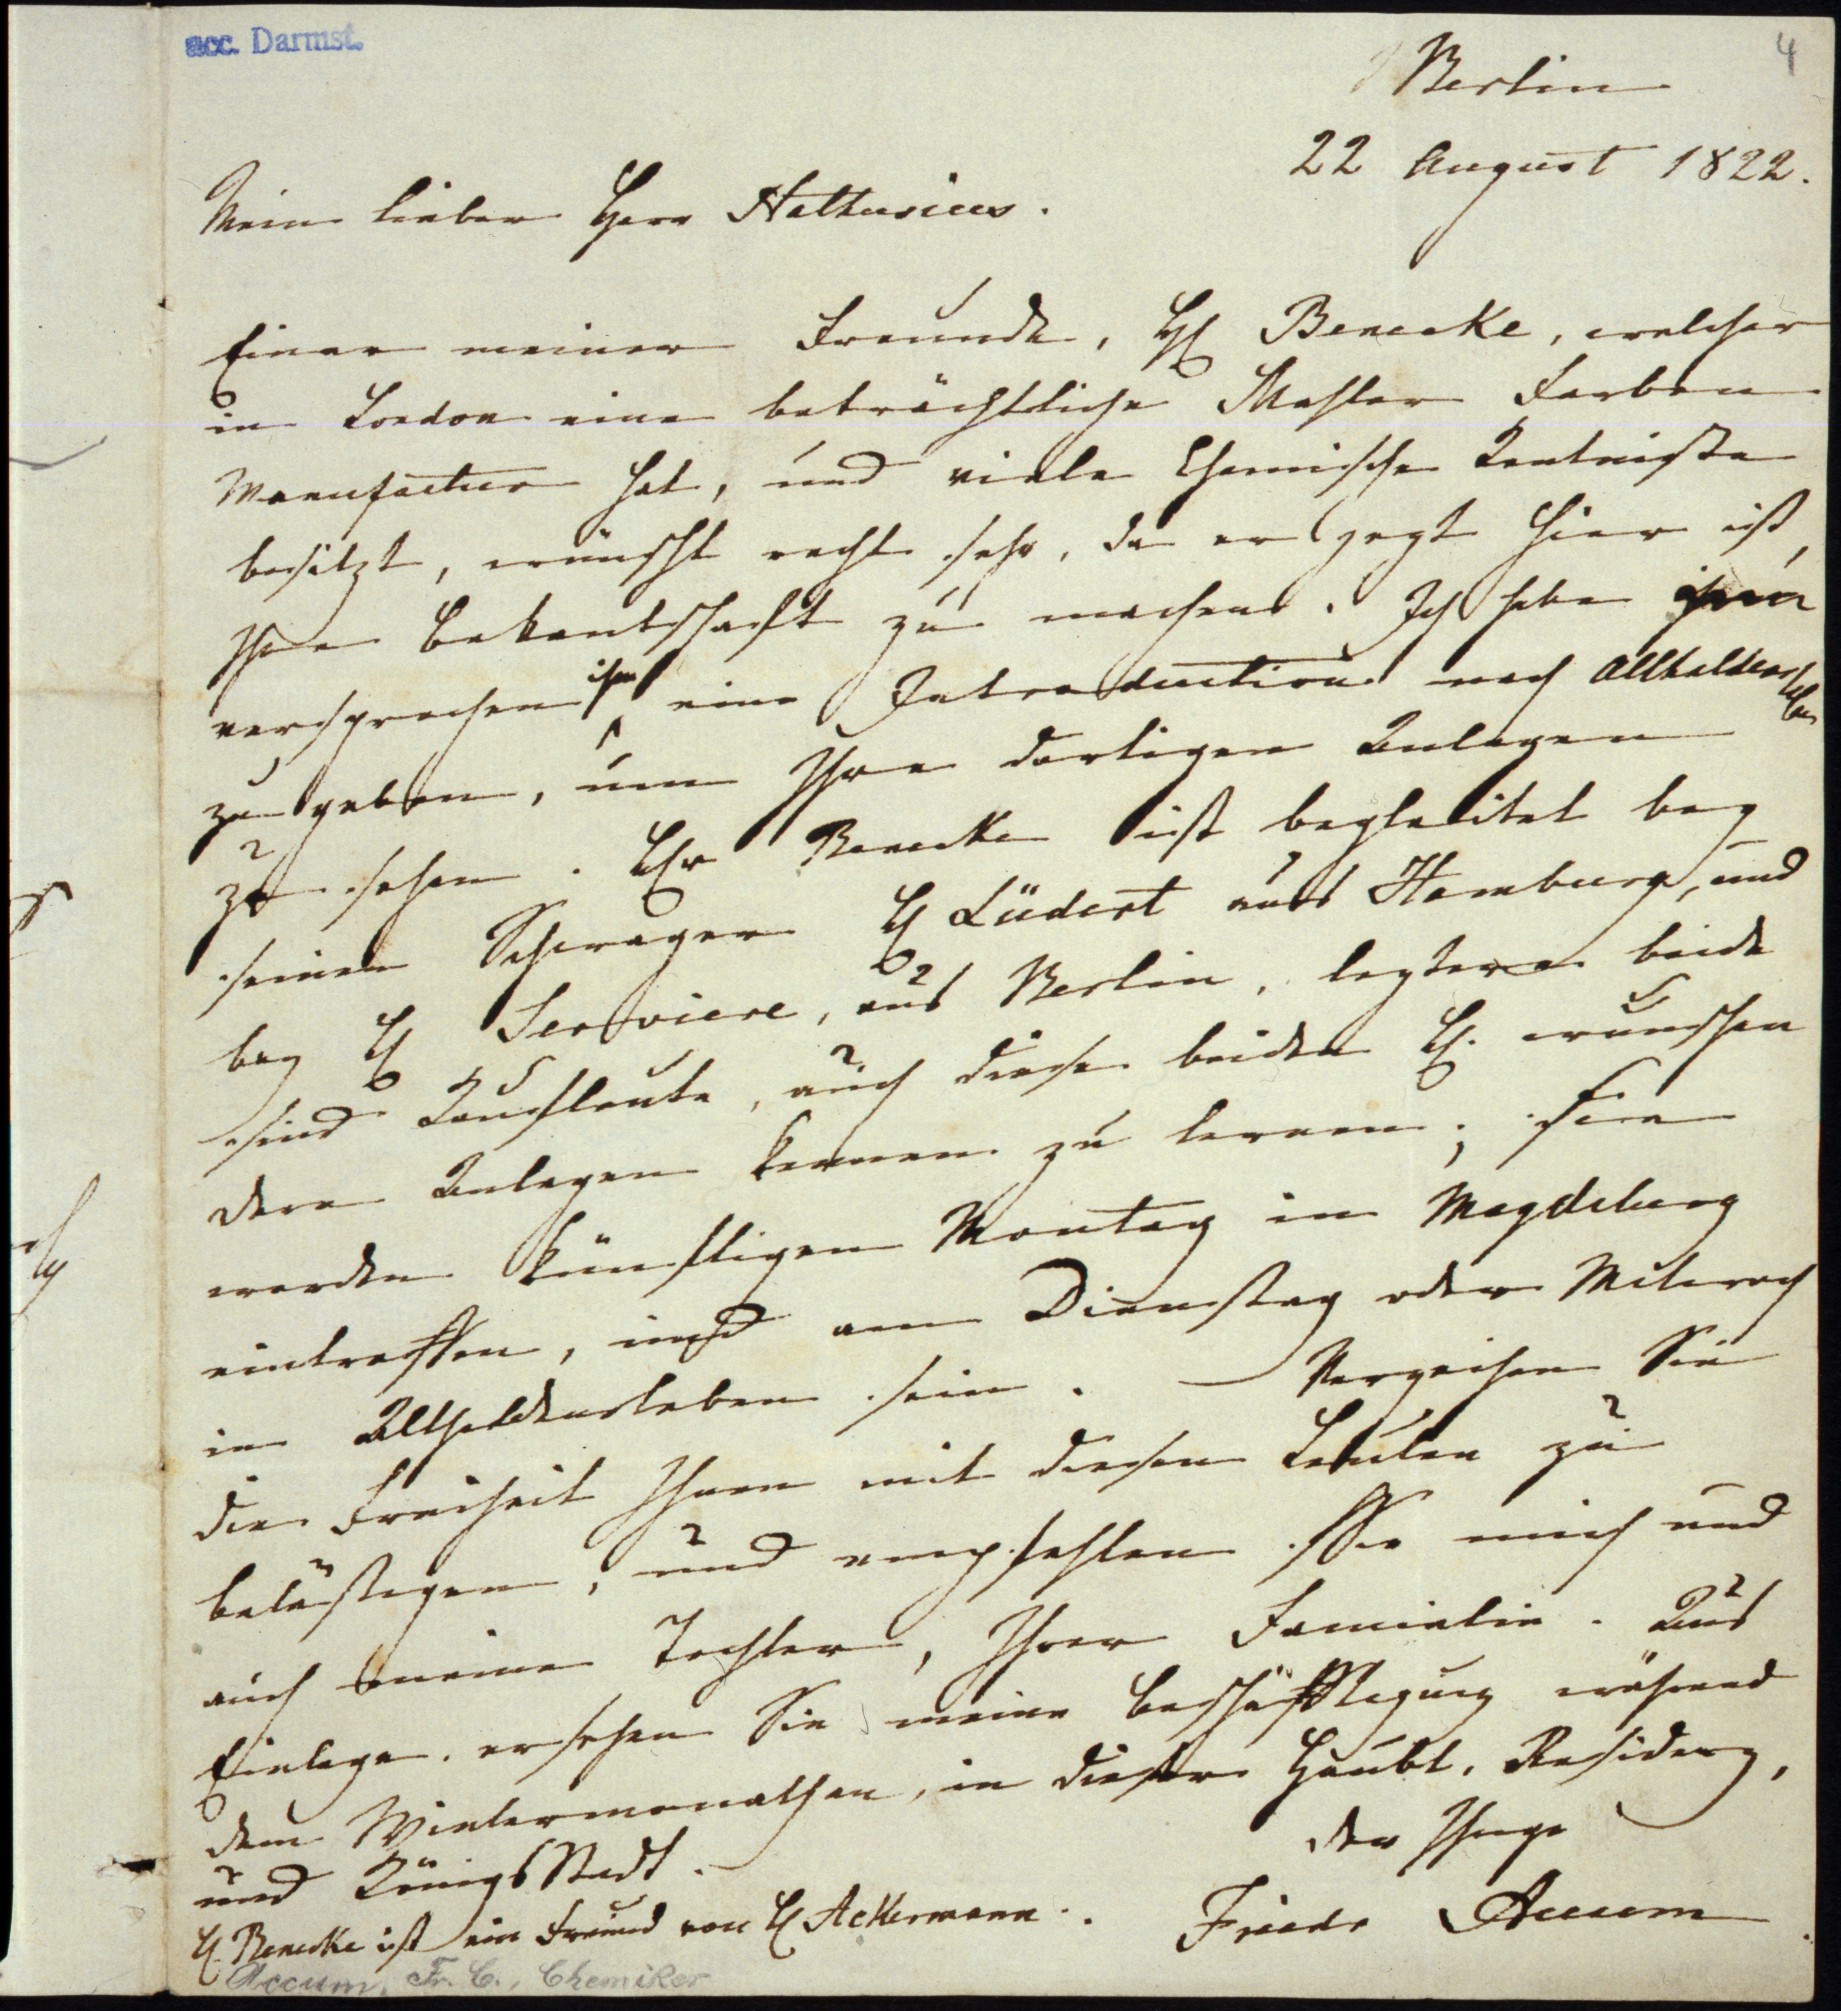 acc. Darmst.
4
Berlin
22 August 1822.
Mein lieber Herr Nathusius.
Einer meiner Freunde, H Benecke, welcher
in London eine beträchtliche Mahler Farben
Manufactur hat, und viele Chemische Kentniße
besitzt, wünscht recht sehr, da er jezt hier ist,
Ihre Bekantschaft zu machen. Ich habe
versprochen ihm eine Introduction nach Althaldensleben
zu geben, um Ihre dortigen Anlagen
zu sehen. Hr Benecke ist begleitet bey
seinen Schwager H Lüdert aus Hamburg, und
bey H Serviere, aus Berlin, leztere beide
sind Kaufleute, auch diese beiden H. wünschen
dere Anlagen kennen zu lernen; sie
werden künftigen Montag in Magdeburg
eintreffen, und am Dienstag oder Mitwoch
in Althaldensleben sein. – Verzeihen Sie
die Freiheit Ihnen mit diesen Leuten zu
belästigen, und empfehlen Sie mich und
auch meine Tochter, Ihrer Familie. Aus
Einlage ersehen Sie meine Beschäfftigung während
den Wintermonathen, in dieser Haubt, Residenz,
und KönigsStadt.
der Ihrige
H. Benecke ist ein Freund von H Ackermann.
Friedr Accum
Accum, Fr. C., Chemiker